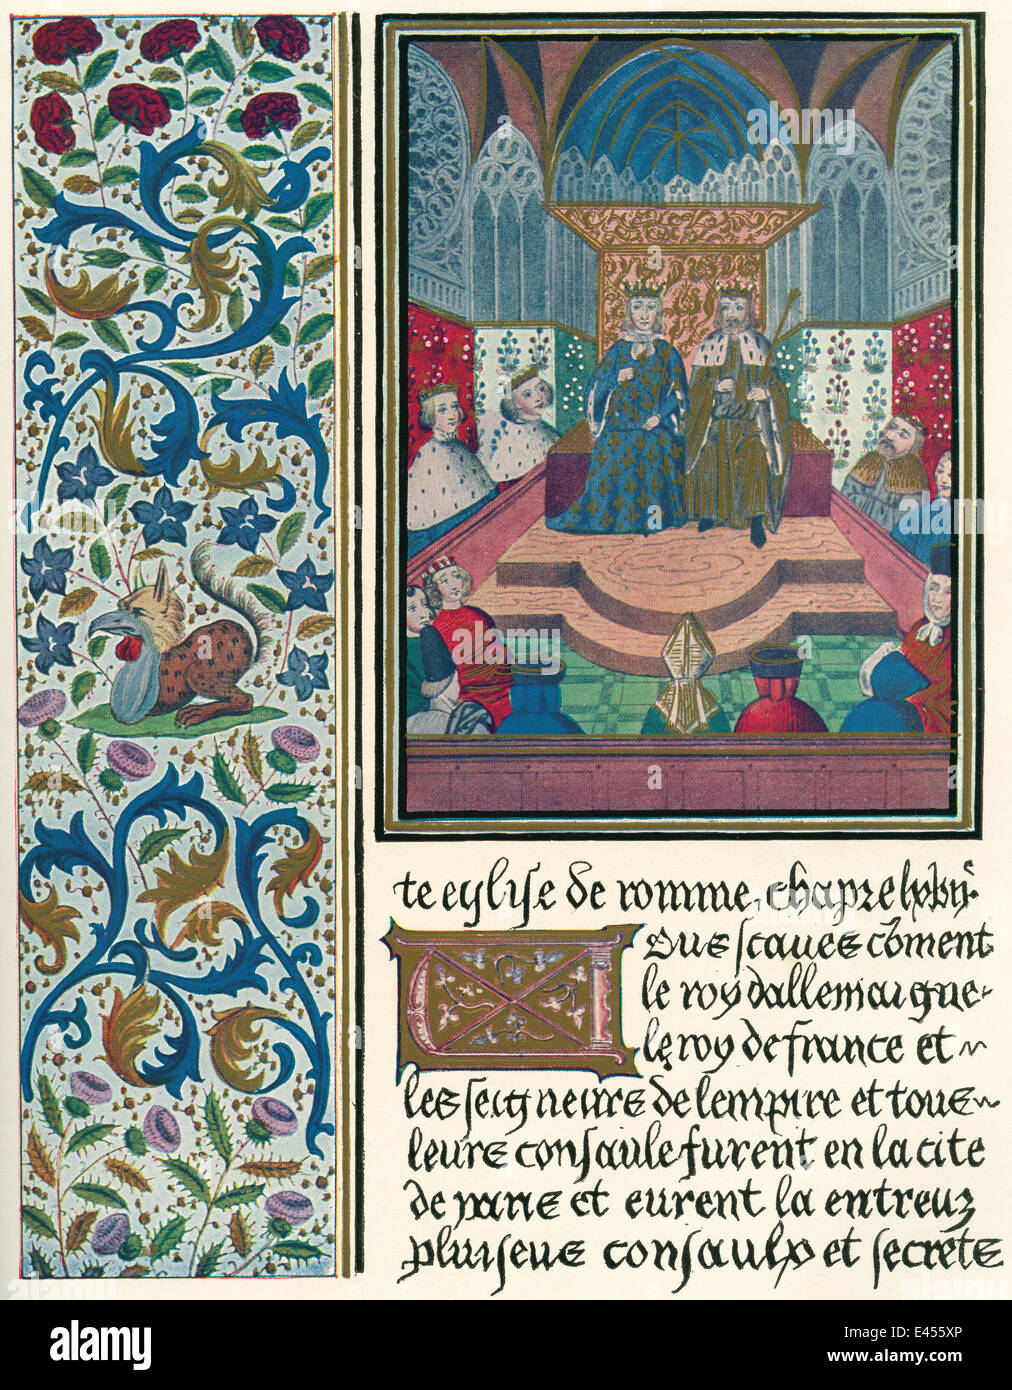 te eglise de romme, chap̄re lxviij.
Vous scaues cōment
le roy dallemaigne
le roy de france et
les seigneurs de lempire et tous
leurs consaulx furent en la cite
de rains et eurent la entreulz
pluiseurs consaulx et secretz
alamy
Image ID: E455XP
www.alamy.com